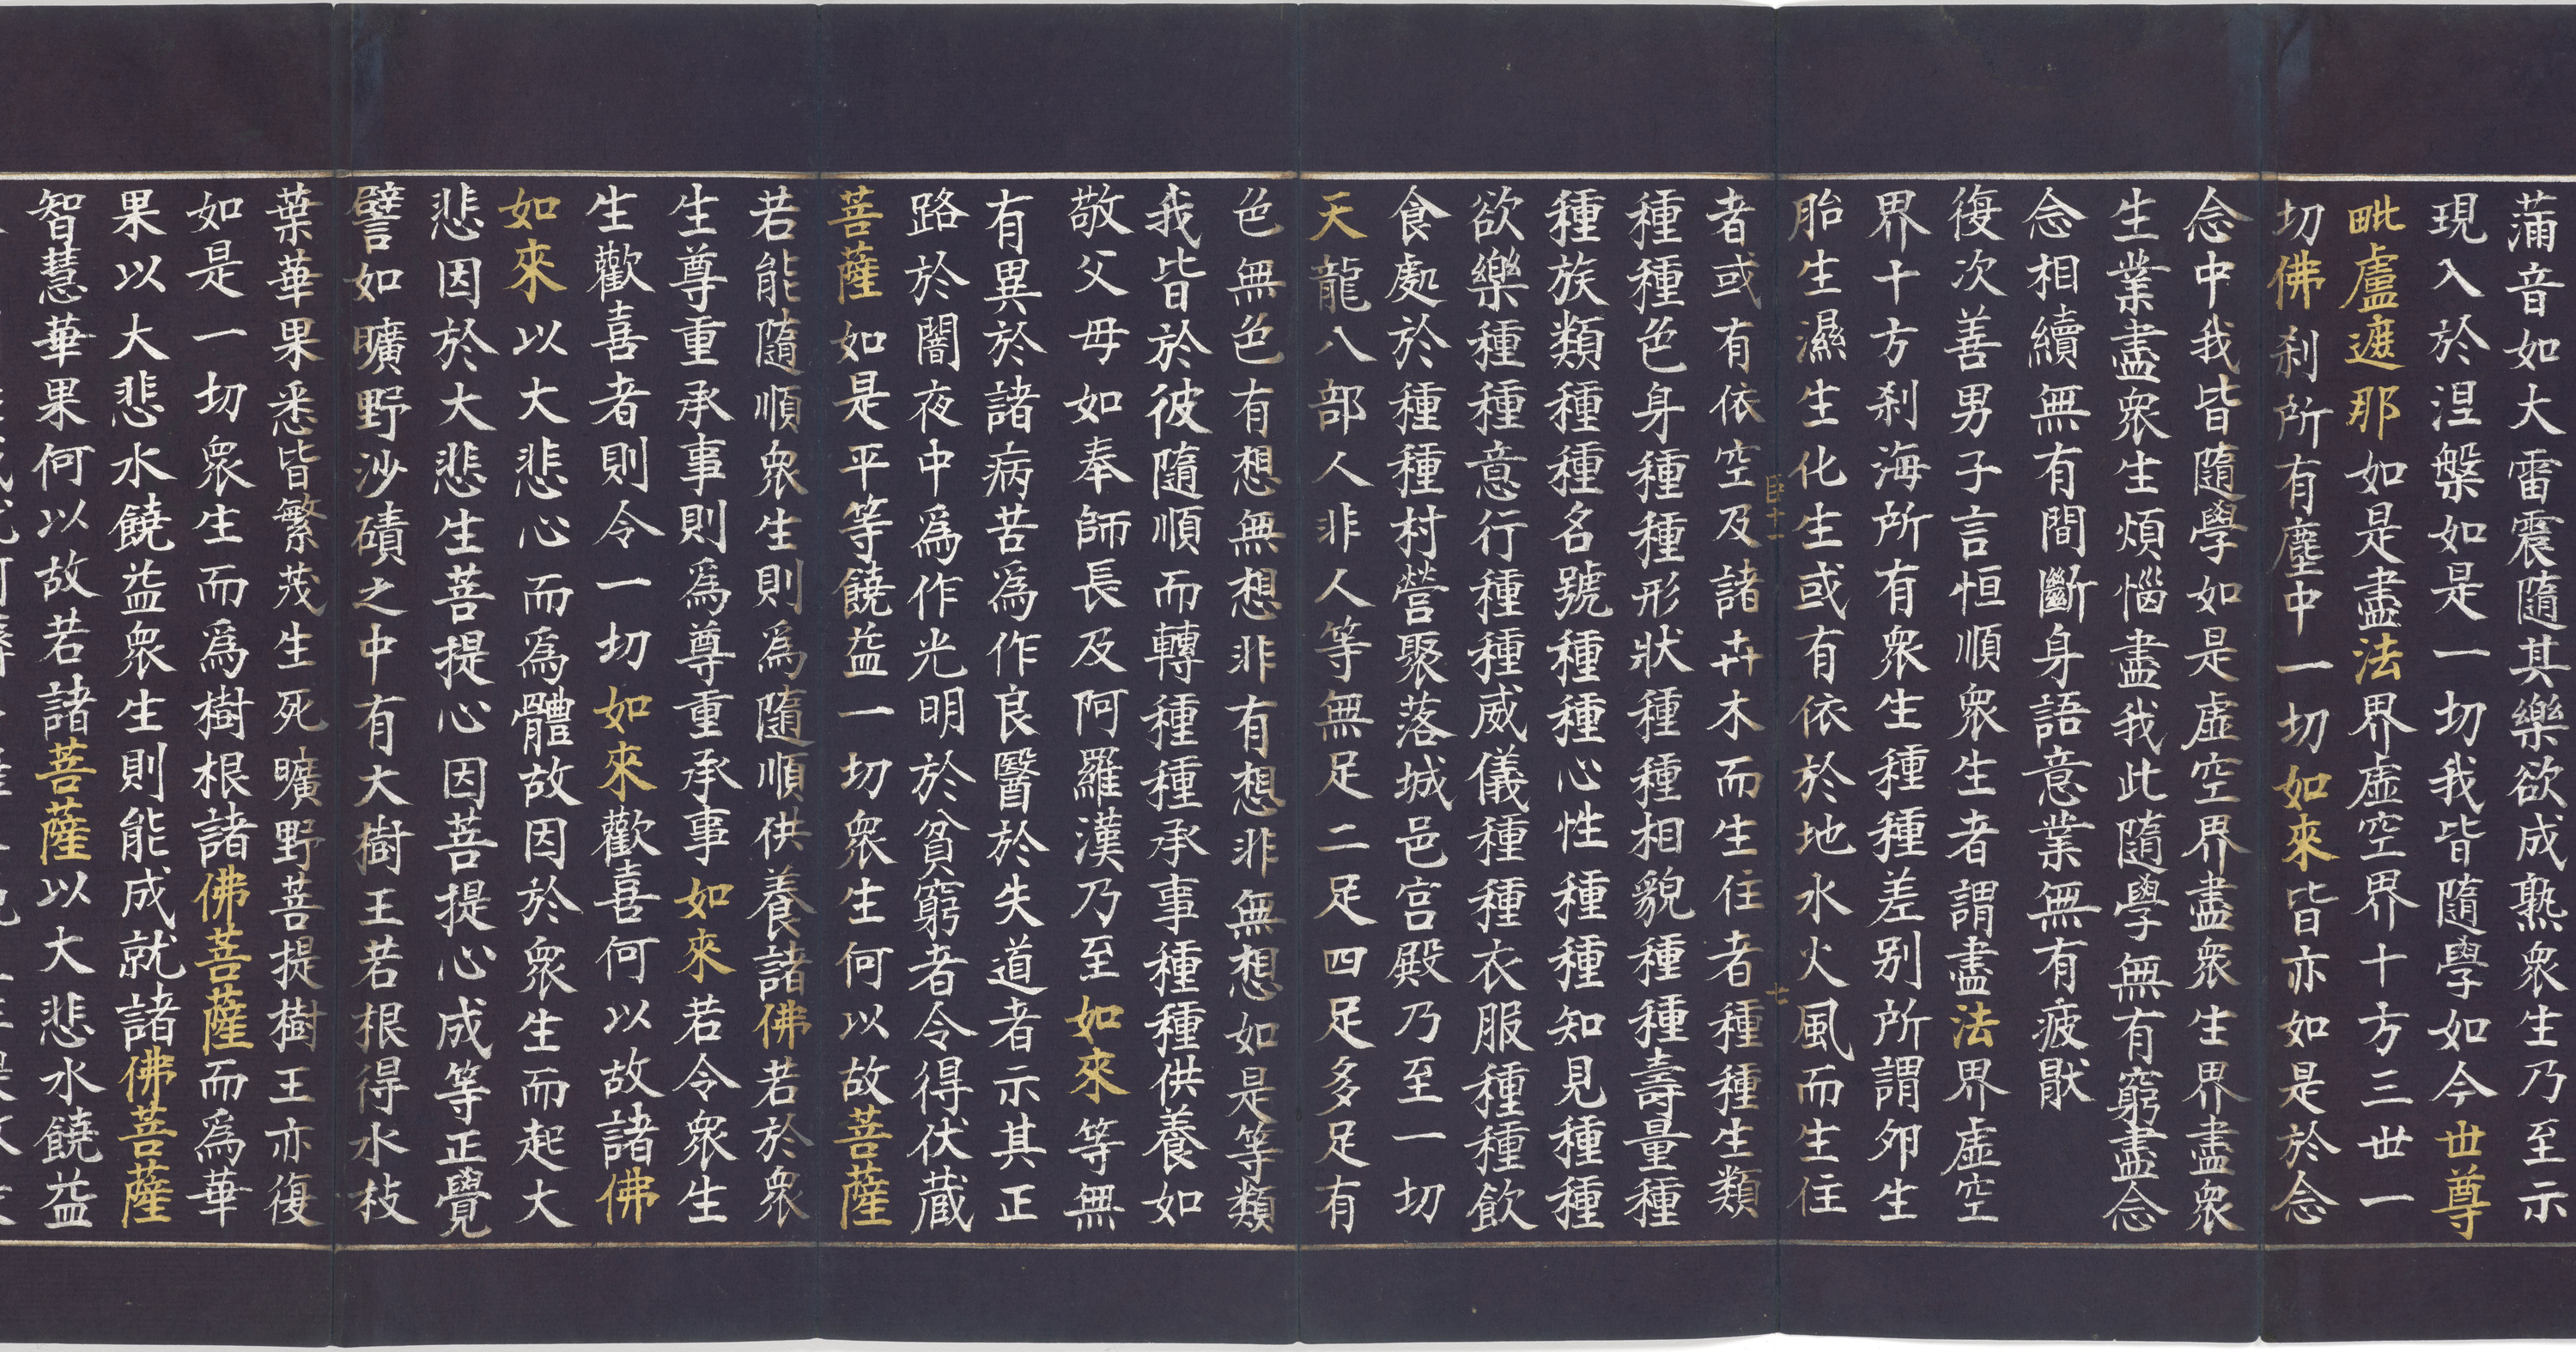 蒲音如大雷震隨其樂欲成熟衆生乃至示
現入於涅槃如是一切我皆隨學如今世尊
毗盧遮那如是盡法界虛空界十方三世一
切佛刹所有塵中一切如來皆亦如是於念
念中我皆隨學如是虛空界盡衆生界盡衆
生業盡衆生煩惱盡我此隨學無有窮盡念
念相續無有間斷身語意業無有疲猒
復次善男子言恒順衆生者謂盡法界虛空
界十方刹海所有衆生種種差別所謂卵生
胎生濕生化生或有依於地水火風而生住
臣十一 七
者或有依空及諸卉木而生住者種種生類
種種色身種種形狀種種相貌種種壽量種
種族類種種名號種種心性種種知見種種
欲樂種種意行種種威儀種種衣服種種飮
食處於種種村營聚落城邑宮殿乃至一切
天龍八部人非人等無足二足四足多足有
色無色有想無想非有想非無想如是等類
我皆於彼隨順而轉種種承事種種供養如
敬父母如奉師長及阿羅漢乃至如來等無
有異於諸病苦爲作良醫於失道者示其正
路於闇夜中爲作光明於貧窮者令得伏藏
菩薩如是平等饒益一切衆生何以故菩薩
若能隨順衆生則爲隨順供養諸佛若於衆
生尊重承事則爲尊重承事如來若令衆生
生歡喜者則令一切如來歡喜何以故諸佛
如來以大悲心而爲體故因於衆生而起大
悲因於大悲生菩提心因菩提心成等正覺
譬如曠野沙磧之中有大樹王若根得水枝
葉華果悉皆繁茂生死曠野菩提樹王亦復
如是一切衆生而爲樹根諸佛菩薩而爲華
果以大悲水饒益衆生則能成就諸佛菩薩
智慧華果何以故若諸菩薩以大悲水饒益